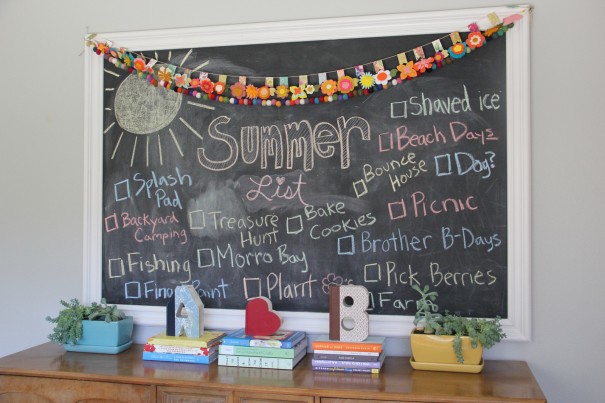 Summer
List
Splash
Pad
Backyard
Camping
Fishing
Paint
Treasure
Hunt
Morro Bay
Plant
Bake
Cookies
Shaved ice
Beach Days
Bounce
House
Dog?
Picnic
Brother B-Days
Pick Berries
Farm
A
B